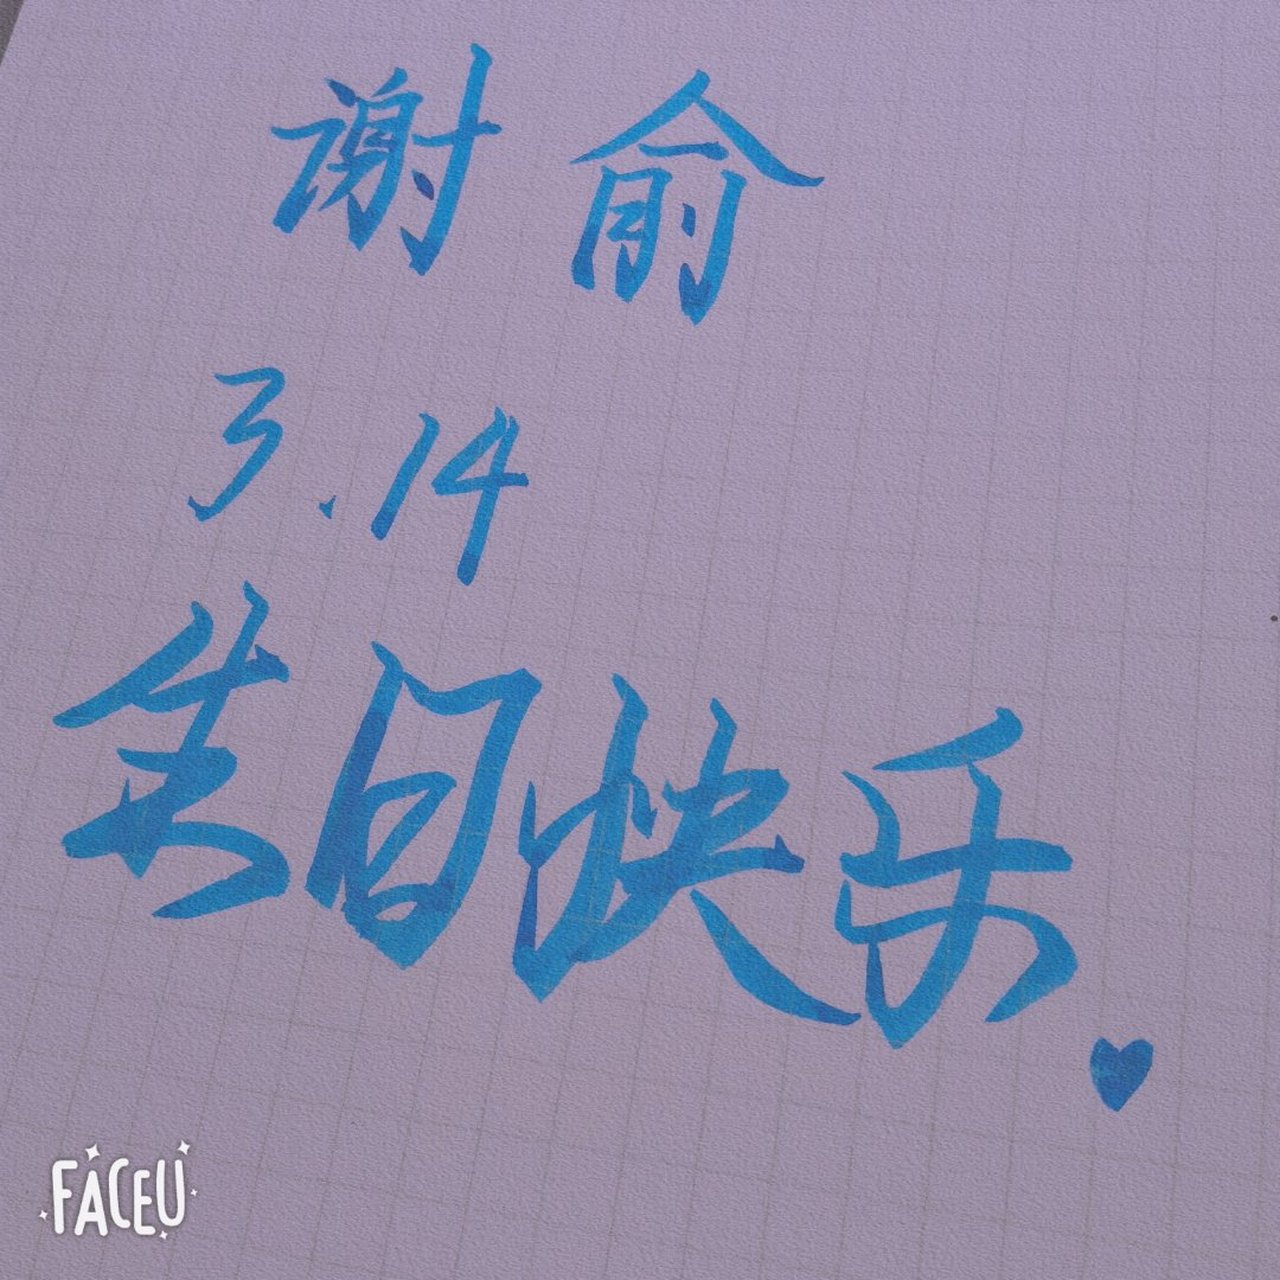 谢俞
3.14
生日快乐
FACEU